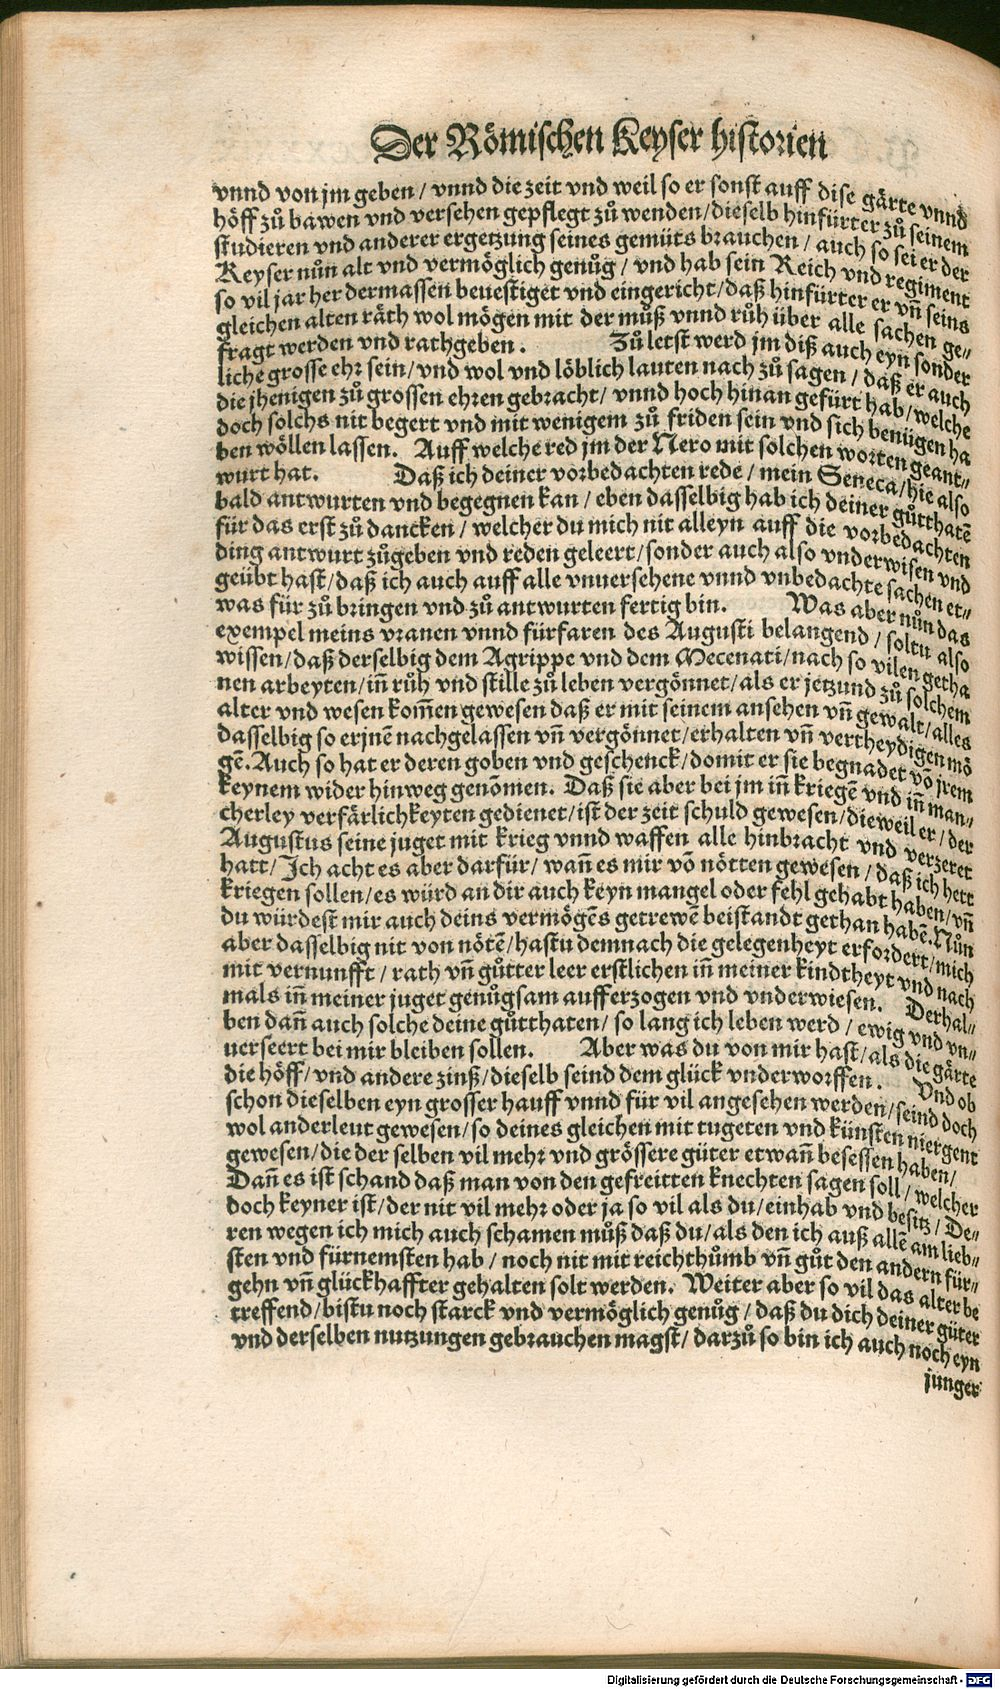 Der Römischen Keyser historien
vnnd von jm geben / vnnd die zeit vnd weil so er sonst auff dise gärte vnnd
höff zů bawen vnd versehen gepflegt zů wenden / dieselb hinfürter zů seinem
studieren vnd anderer ergetzung seines gemüts brauchen / auch so sei er der
Keyser nůn alt vnd vermöglich genůg / vnd hab sein Reich vnd regiment
so vil jar her dermassen beuestiget vnd eingericht / daß hinfürter er vñ seins
gleichen alten räth wol mögen mit der můß vnnd růh über alle sachen ge⸗
fragt werden vnd rathgeben. Zů letst werd jm diß auch eyn sonder
liche grosse ehr sein / vnd wol vnd löblich lauten nach zů sagen / daß er auch
die jhenigen zů grossen ehren gebracht / vnnd hoch hinan gefürt hab / welche
doch solchs nit begert vnd mit wenigem zů friden sein vnd sich benügen ha
ben wöllen lassen. Auff welche red jm der Nero mit solchen worten geant⸗
wurt hat. Daß ich deiner vorbedachten rede / mein Seneca / hie also
bald antwurten vnd begegnen kan / eben dasselbig hab ich deiner gůtthatẽ
für das erst zů dancken / welcher du mich nit alleyn auff die vorbedachten
ding antwurt zůgeben vnd reden geleert / sonder auch also vnderwisen vnd
geübt hast / daß ich auch auff alle vnuersehene vnnd vnbedachte sachen et⸗
was für zů bringen vnd zů antwurten fertig bin. Was aber nůn das
exempel meins vranen vnnd fürfaren des Augusti belangend / soltu also
wissen / daß derselbig dem Agrippe vnd dem Mecenati / nach so vilen getha
nen arbeyten / iñ růh vnd stille zů leben vergönnet / als er jetzund zů solchem
alter vnd wesen kom̃en gewesen daß er mit seinem ansehen vñ gewalt / alles
dasselbig so er jnẽ nachgelassen vñ vergönnet / erhalten vñ vertheydigen mö
gẽ. Auch so hat er deren goben vnd geschenck / domit er sie begnadet võ jrem
keynem wider hinweg genõmen. Daß sie aber bei jm iñ kriegẽ vnd iñ man⸗
cherley verfärlichkeyten gedienet / ist der zeit schuld gewesen / dieweil er / der
Augustus seine juget mit krieg vnnd waffen alle hinbracht vnd verzeret
hatt / Ich acht es aber darfür / wañ es mir võ nötten gewesen / daß ich hett
kriegen sollen / es würd an dir auch keyn mangel oder fehl gehabt haben / vñ
du würdest mir auch deins vermögẽs getrewẽ beistandt gethan habẽ. Nůn
aber dasselbig nit von nötẽ / hastu demnach die gelegenheyt erfordert / mich
mit vernunfft / rath vñ gůtter leer erstlichen iñ meiner kindtheyt vnd nach
mals iñ meiner juget genůgsam aufferzogen vnd vnderwiesen. Derhal⸗
ben dañ auch solche deine gůtthaten / so lang ich leben werd / ewig vnd vn⸗
uerseert bei mir bleiben sollen. Aber was du von mir hast / als die gärte
die höff / vnd andere zinß / dieselb seind dem glück vnderworffen. Vnd ob
schon dieselben eyn grosser hauff vnnd für vil angesehen werden / seind doch
wol anderleut gewesen / so deines gleichen mit tugeten vnd künsten niergent
gewesen / die der selben vil mehr vnd grössere güter etwañ besessen haben /
Dañ es ist schand daß man von den gefreitten knechten sagen soll / welcher
doch keyner ist / der nit vil mehr oder ja so vil als du / einhab vnd besitz / De⸗
ren wegen ich mich auch schamen můß daß du / als den ich auß allẽ am lieb⸗
sten vnd fürnemsten hab / noch nit mit reichthůmb vñ gůt den andern für⸗
gehn vñ glückhaffter gehalten solt werden. Weiter aber so vil das alter be
treffend / bistu noch starck vnd vermöglich genůg / daß du dich deiner güter
vnd derselben nutzungen gebrauchen magst / darzů so bin ich auch noch eyn
junger
Digitalisierung gefördert durch die Deutsche Forschungsgemeinschaft - DFG